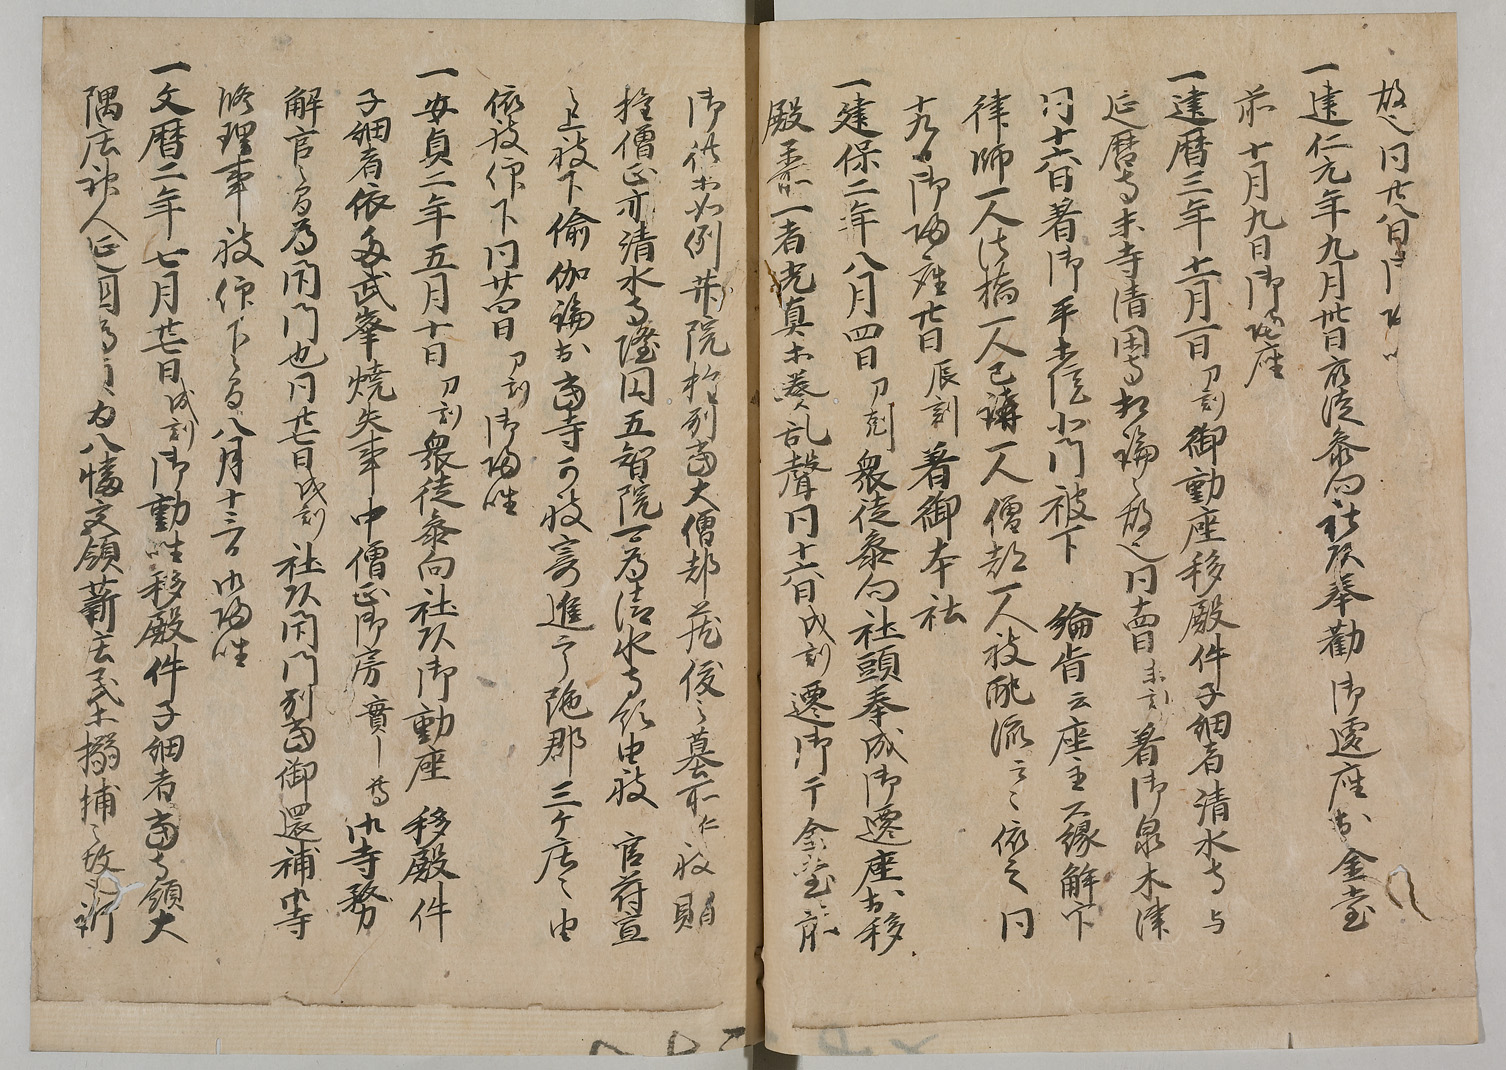 故也同廿八日御帰
一建仁元年九月卅日衆徒参向社頭奉勧御遷座於金堂
前十月九日御帰座
一建暦三年十一月一日刀刻御動座移殿件子細者清水寺与
延暦寺末寺清閑寺相論之故也同十六日未刻著御泉木津
同十六日著御平等院北門被下 綸旨云座主公縁解下
律師一人法橋一人已講一人僧都一人被配流云々依之同
十九日御帰座廿日辰刻著御本社
一建保二年八月四日刀剋衆徒参向社頭奉成御遷座於移
殿一者光真等奏乱聲同十六日戌刻遷御于金堂之前
御供等如例并院於別当大僧都範俊之墓所仁被贈
権僧正亦清水寺 五智院可為清水寺領由被 官符宣
之上被下瑜伽論於当寺可被寄進之 郡三ケ庄之由
依被仰下同廿四日刀刻御帰坐
一安貞二年五月十日刀刻衆徒参向社頭御動座 移殿件
子細者依多武峯焼失事中僧正御房實尊御寺務
解官之間為閇門也同廿七日戌刻社頭閇門別当御還補寺
修理事被仰下之間八月十三日御帰坐
一文暦二年七月廿七日戌刻御動坐移殿件子細者当寺領大
隅庄神人 四 為八幡宮領薪庄民等搦捕之故